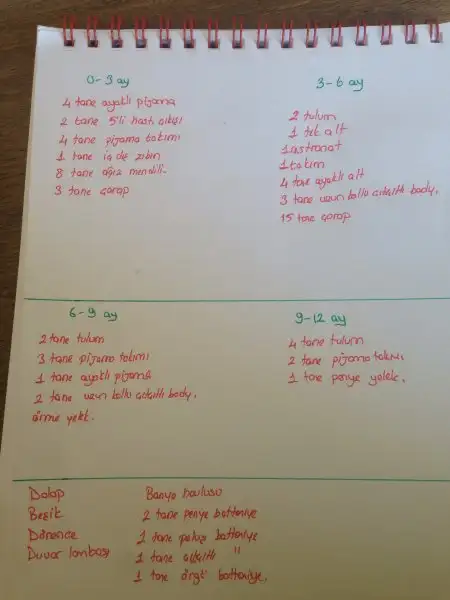 0-3 ay
4 tane ayaklı pijama
2 tane 5'li hast. çıkışı
4 tane pijama takımı
1 tane iç dış zıbın
8 tane ağız mendili.
3 tane çorap
3-6 ay
2 tulum
1 tek alt
1 astronot
1 takım
4 tane ayaklı alt
3 tane uzun kollu çıtçıtlı body.
15 tane çorap
6-9 ay
2 tane tulum
3 tane pijama takımı
1 tane ayaklı pijama
2 tane uzun kollu çıtçıtlı body.
örme yelek.
9-12 ay
4 tane tulum
2 tane pijama takımı
1 tane penye yelek.
Dolap
Beşik
Dönence
Duvar lambası
Banyo havlusu
2 tane penye battaniye
1 tane peluş battaniye
1 tane çıtçıtlı "
1 tane örgü battaniye.